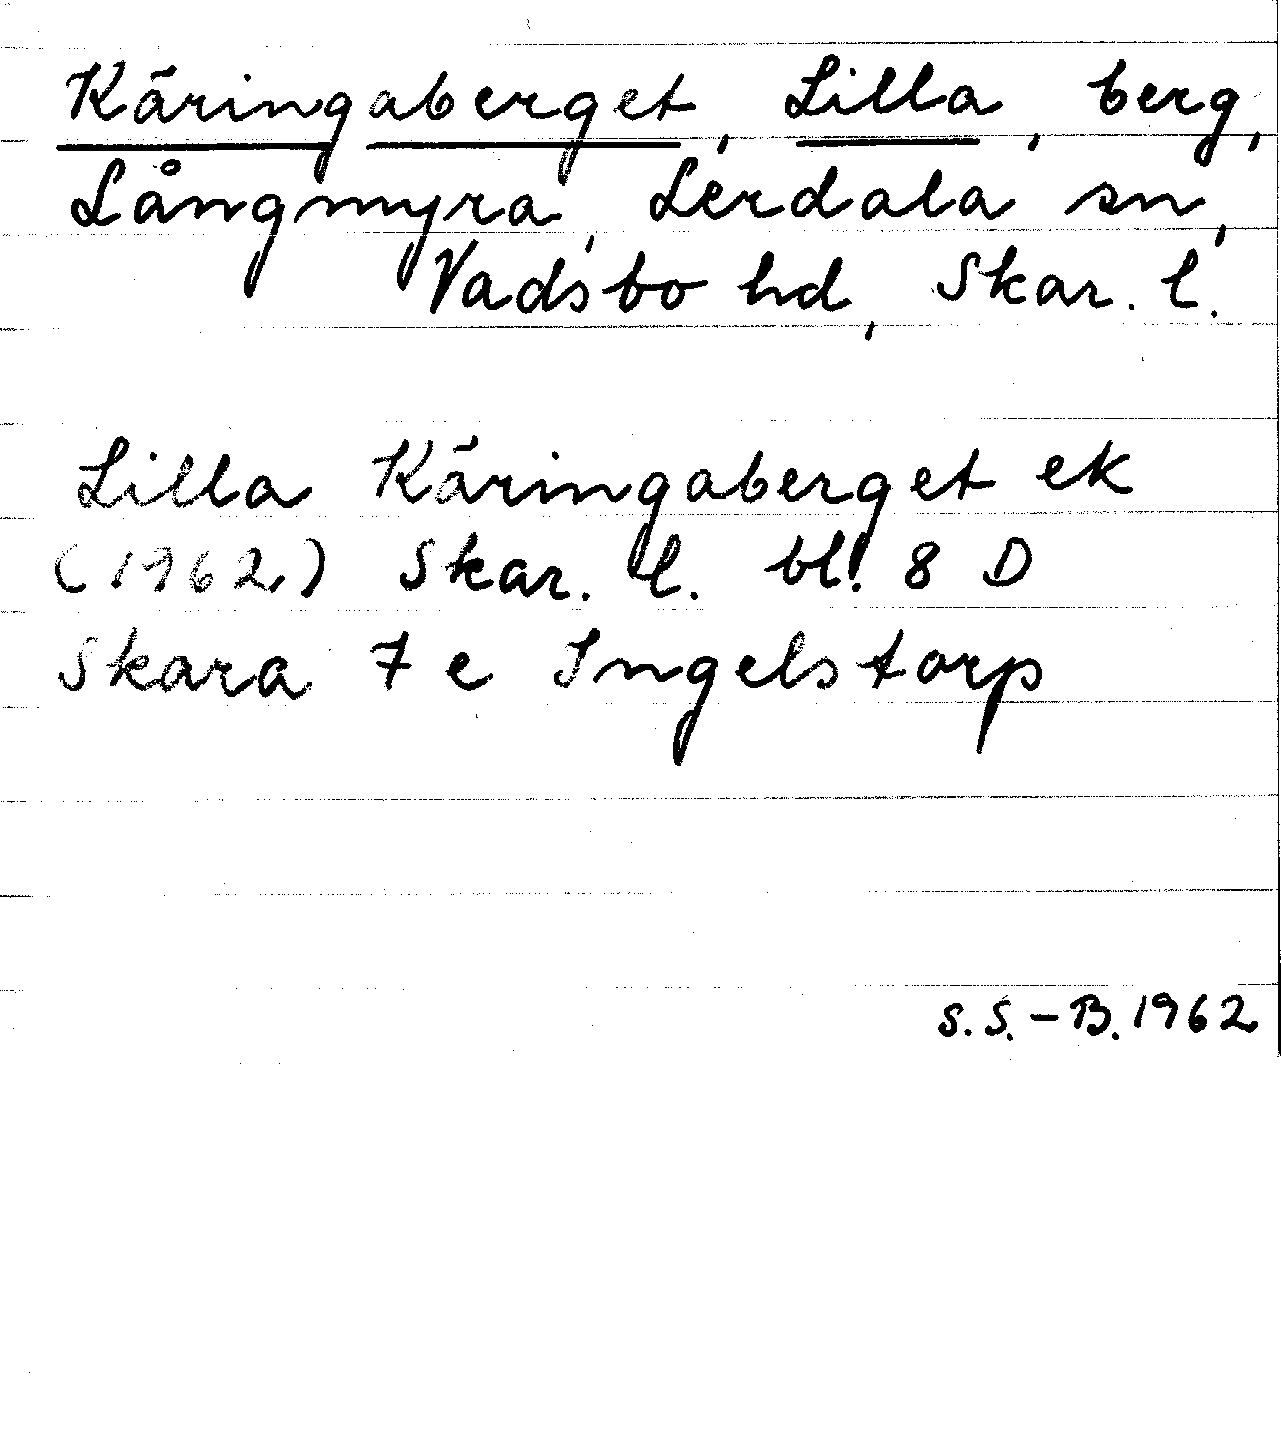 Käringaberget, Lilla, berg,
Långmyra, Lerdala sn,
Vadsbo hd, Skar. l.
Lilla Käringaberget ek
(1962) Skar. l. bl. 8 D
Skara 7 e Ingelstorp
S. S. - B. 1962